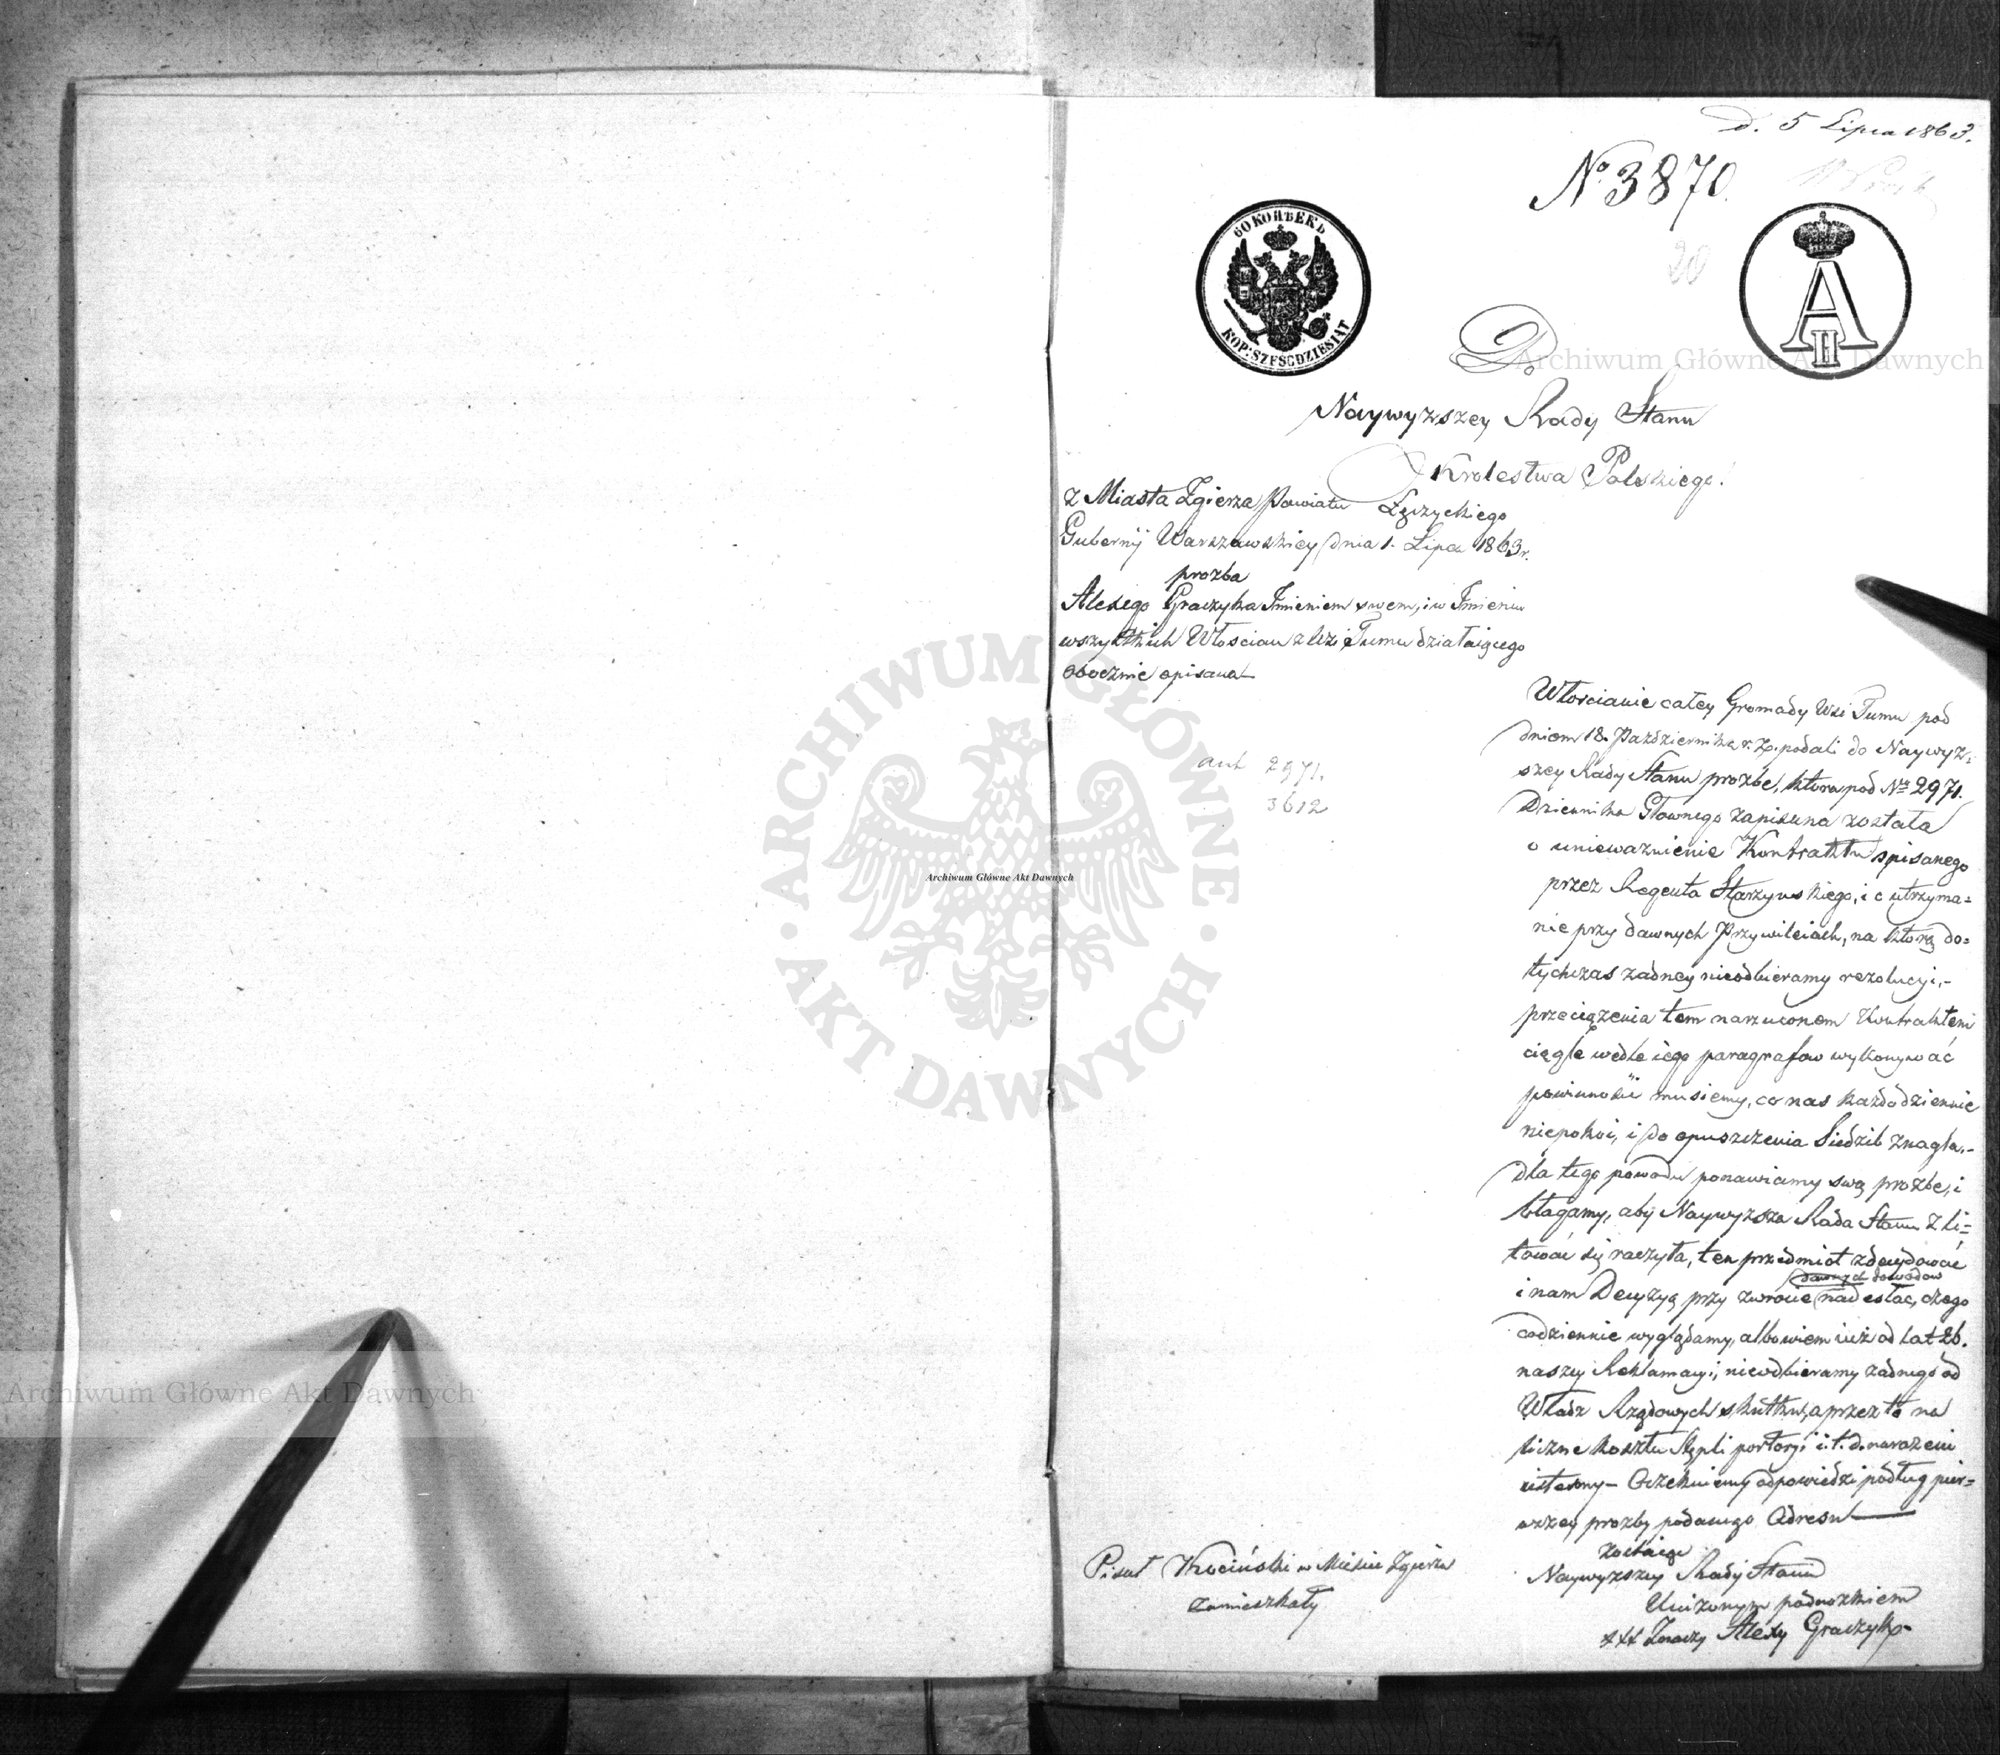 d. 5 Lipca 1863.
No. 3870.
20
60 КОПѢЕКЪ
KOP: SZEŚĆDZIESIĄT
A II
Do
Naywyzszey Rady Stanu
Krolestwa Polskiego!
z Miasta Zgierza Powiatu Łęczyckiego
Gubernij Warszawskiey dnia 1. Lipca 1863 r.
prozba
Alexego Graczyka Imieniem swem, i w Imieniu
wszystkich Włoscian z Wsi Tumu działaiącego
obocznie opisana
ant 2971.
3612
Włoscianie całey Gromady Wsi Tumu pod
dniem 18. Pazdziernika r. z. podali do Naywyz-
szey Rady Stanu prozbe, ktora pod No 2971.
Dziennika Głownego zapisana została
o uniewaznienie Kontraktu spisanego
przez Regenta Starzynskiego, i o utrzyma=
nie przy dawnych Przywileiach, na ktorą do=
tychczas zadney nieodbieramy rezolucyi,-
przeciązenia tem narzuconem Kontraktem
ciągle wedle iego paragrafow wykonywać
powinnosci musiemy, co nas kazdodziennie
niepokoi, i do opuszczenia Siedzib znagla,-
dla tego powodu ponawiamy swą prozbe, i
błagamy, aby Naywyzsza Rada Stanu zli=
tować się raczyła, ten przedmiot zdecydować
dawnych dowodow
i nam Decyzyą przy zwrocie nadesłac, czego
codziennie wyglądamy, albowiem iuż od lat 26.
naszey Reklamacyi, nieodbieramy zadnego od
Władz Rządowych skutku, a przez to na
liczne koszta Stępli portoryi i. t. d. narazeni
iestesmy- Oczekuiemy odpowiedzi podług pier=
wszey prozby podanego Adresu
zostaiąc
Naywyzszey Rady Stanu
Unizonym podnozkiem
xxx Znaczy Alexy Graczyk
Pisał Kociński w Miescie Zgierzu
zamieszkały
ARCHIWUM GŁÓWNE AKT DAWNYCH
Archiwum Główne Akt Dawnych
Archiwum Główne Akt Dawnych
Archiwum Główne Akt Dawnych